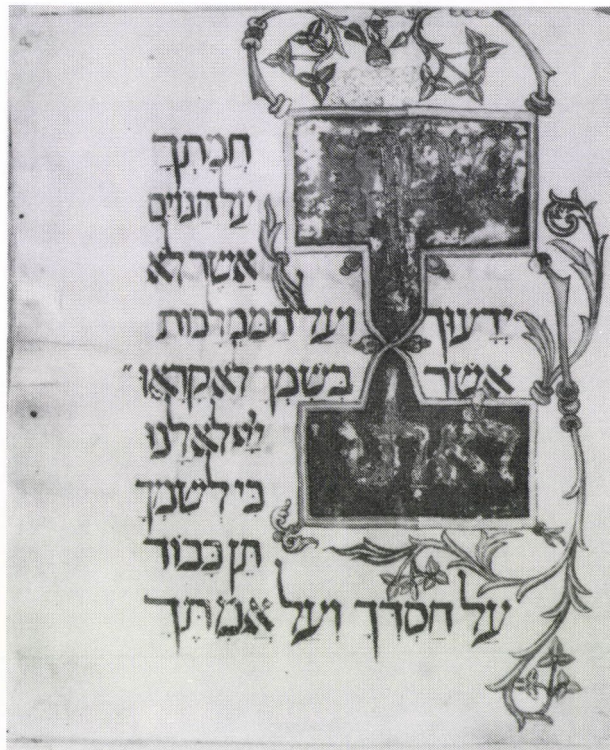 חֲמָתְךָ
עַל הַגּוֹיִם
אֲשֶׁר לֹא
יְדָעוּךָ וְעַל הַמַּמְלָכוֹת
אֲשֶׁר בְּשִׁמְךָ לֹא קָרָאוּ״
יְיָ לֹא לָנוּ
כִּי לְשִׁמְךָ
תֵּן כָּבוֹד
עַל חַסְדְּךָ וְעַל אֲמִתֶּךָ